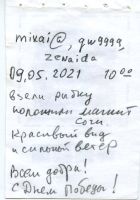 mikai@, qwgggg,
zenaida
09.05.2021 10 00
взяли рыбку
положили магнит
Сочи.
Красивый вид
и сильный ветер
Всем добра!
С Днем Победы!